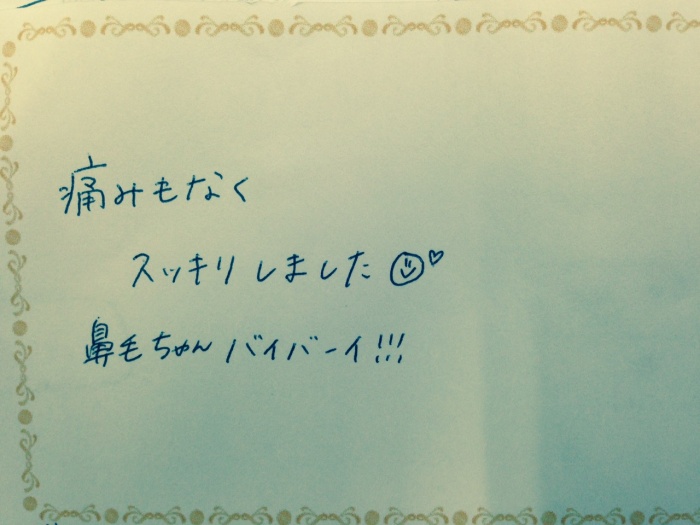 痛みもなく
スッキリしました☺♡
鼻毛ちゃんバイバーイ!!!